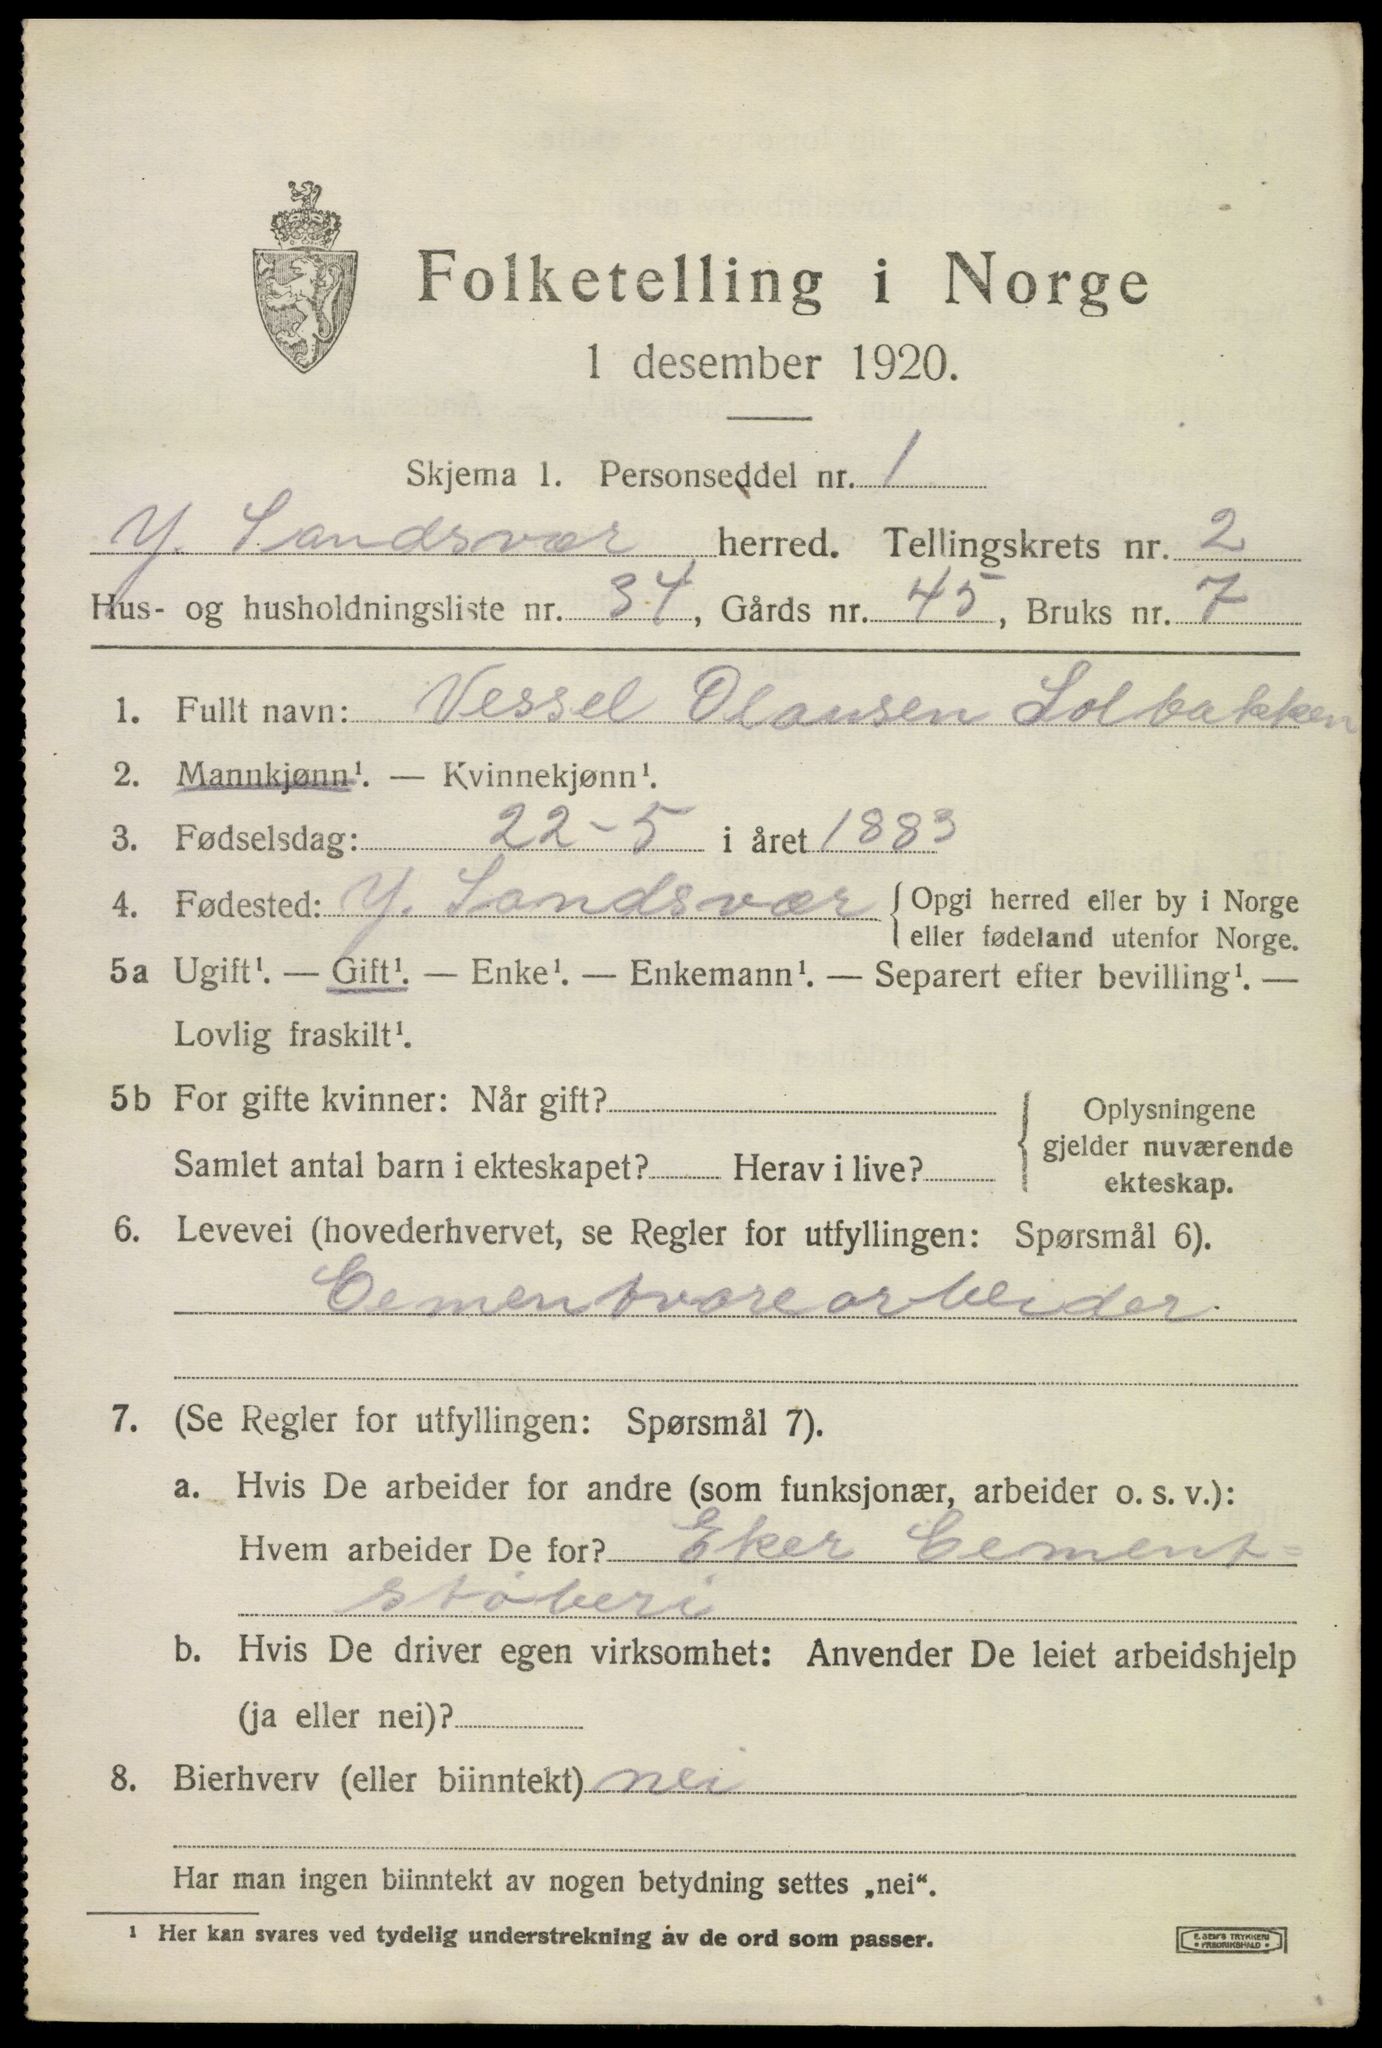 Folketelling i Norge
1 desember 1920.
Skjema 1. Personseddel nr. 1
Y. Sandsvær herred. Tellingskrets nr. 2
Hus- og husholdningsliste nr. 34, Gårds nr. 45, Bruks nr. 7
1. Fullt navn: Vessel Olausen Solbakken
2. Mannkjønn¹. — Kvinnekjønn¹.
3. Fødselsdag: 22-5 i året 1883
4. Fødested: Y. Sandsvær { Opgi herred eller by i Norge
eller fødeland utenfor Norge.
5a Ugift¹. — Gift¹. — Enke¹. — Enkemann¹. — Separert efter bevilling¹. —
Lovlig fraskilt¹.
5b For gifte kvinner: Når gift?
Samlet antal barn i ekteskapet? Herav i live?
Oplysningene
gjelder nuværende
ekteskap.
6. Levevei (hovederhvervet, se Regler for utfyllingen: Spørsmål 6).
Cementvarearbeider.
7. (Se Regler for utfyllingen: Spørsmål 7).
a. Hvis De arbeider for andre (som funksjonær, arbeider o. s. v.):
Hvem arbeider De for? Eker Cement-
støberi
b. Hvis De driver egen virksomhet: Anvender De leiet arbeidshjelp
(ja eller nei)?
8. Bierhverv (eller biinntekt) nei
Har man ingen biinntekt av nogen betydning settes „nei“.
¹ Her kan svares ved tydelig understrekning av de ord som passer.
E. SEM'S TRYKKERI
FREDRIKSHALD